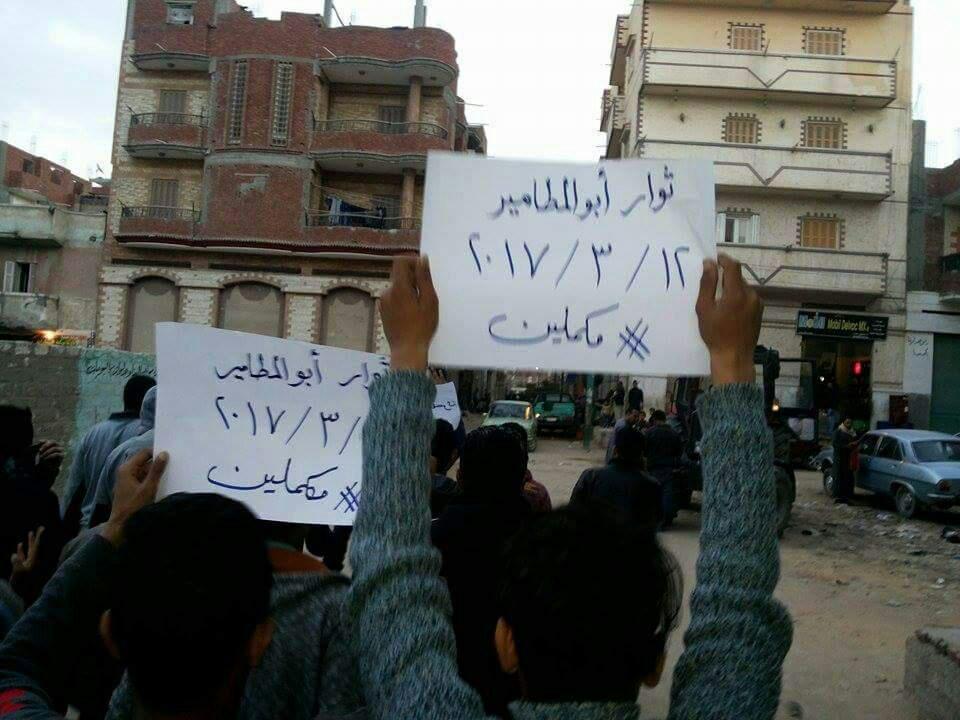 ثوار أبوالمطامير
١٢ / ٣ / ٢٠١٧
# مكملين
ثوار أبوالمطامير
/ ٣ / ٢٠١٧
# مكملين
Mobil Delvac MX